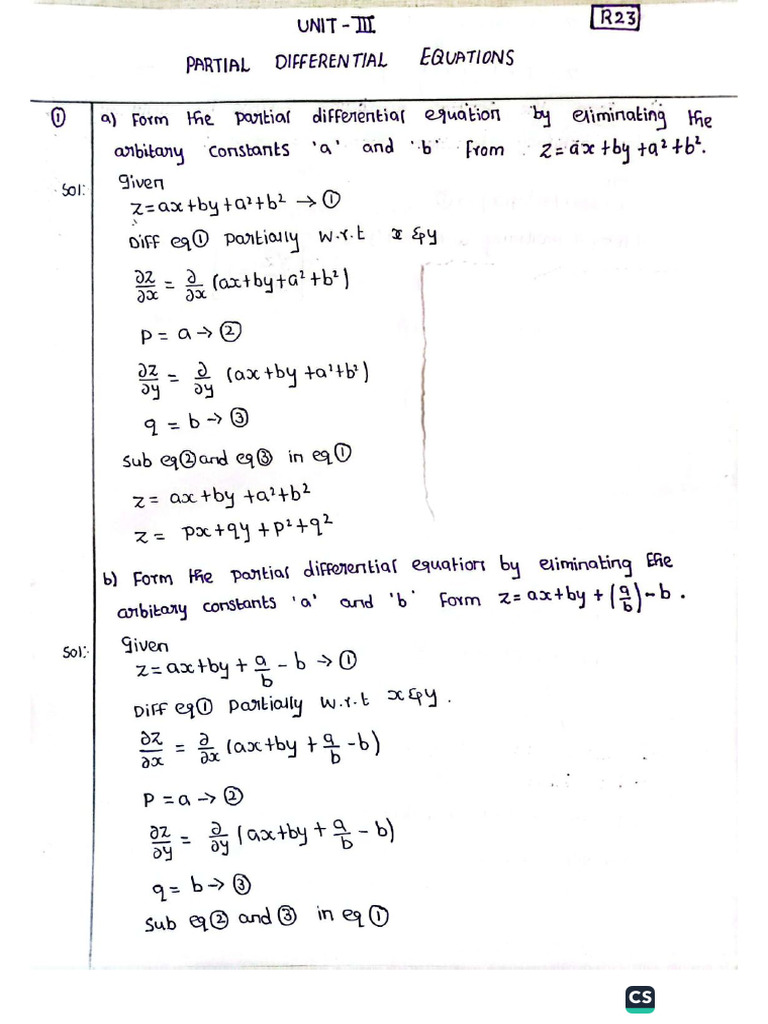 UNIT - III
R23
PARTIAL DIFFERENTIAL EQUATIONS
① a) Form the partial differential equation by eliminating the
arbitary constants 'a' and 'b' from z=ax+by+a²+b².
Sol: Given
z=ax+by+a²+b² → ①
Diff eq① partially w.r.t x & y
∂z/∂x = ∂/∂x (ax+by+a²+b²)
P = a → ②
∂z/∂y = ∂/∂y (ax+by+a²+b²)
q = b → ③
Sub eq② and eq③ in eq①
z = ax+by+a²+b²
z = px+qy+p²+q²
b) Form the partial differential equation by eliminating the
arbitary constants 'a' and 'b' form z=ax+by+(a/b)-b.
Sol:- Given
z=ax+by+a/b-b → ①
Diff eq① partially w.r.t x & y.
∂z/∂x = ∂/∂x (ax+by+a/b-b)
P = a → ②
∂z/∂y = ∂/∂y (ax+by+a/b-b)
q = b → ③
Sub eq② and ③ in eq①
CS